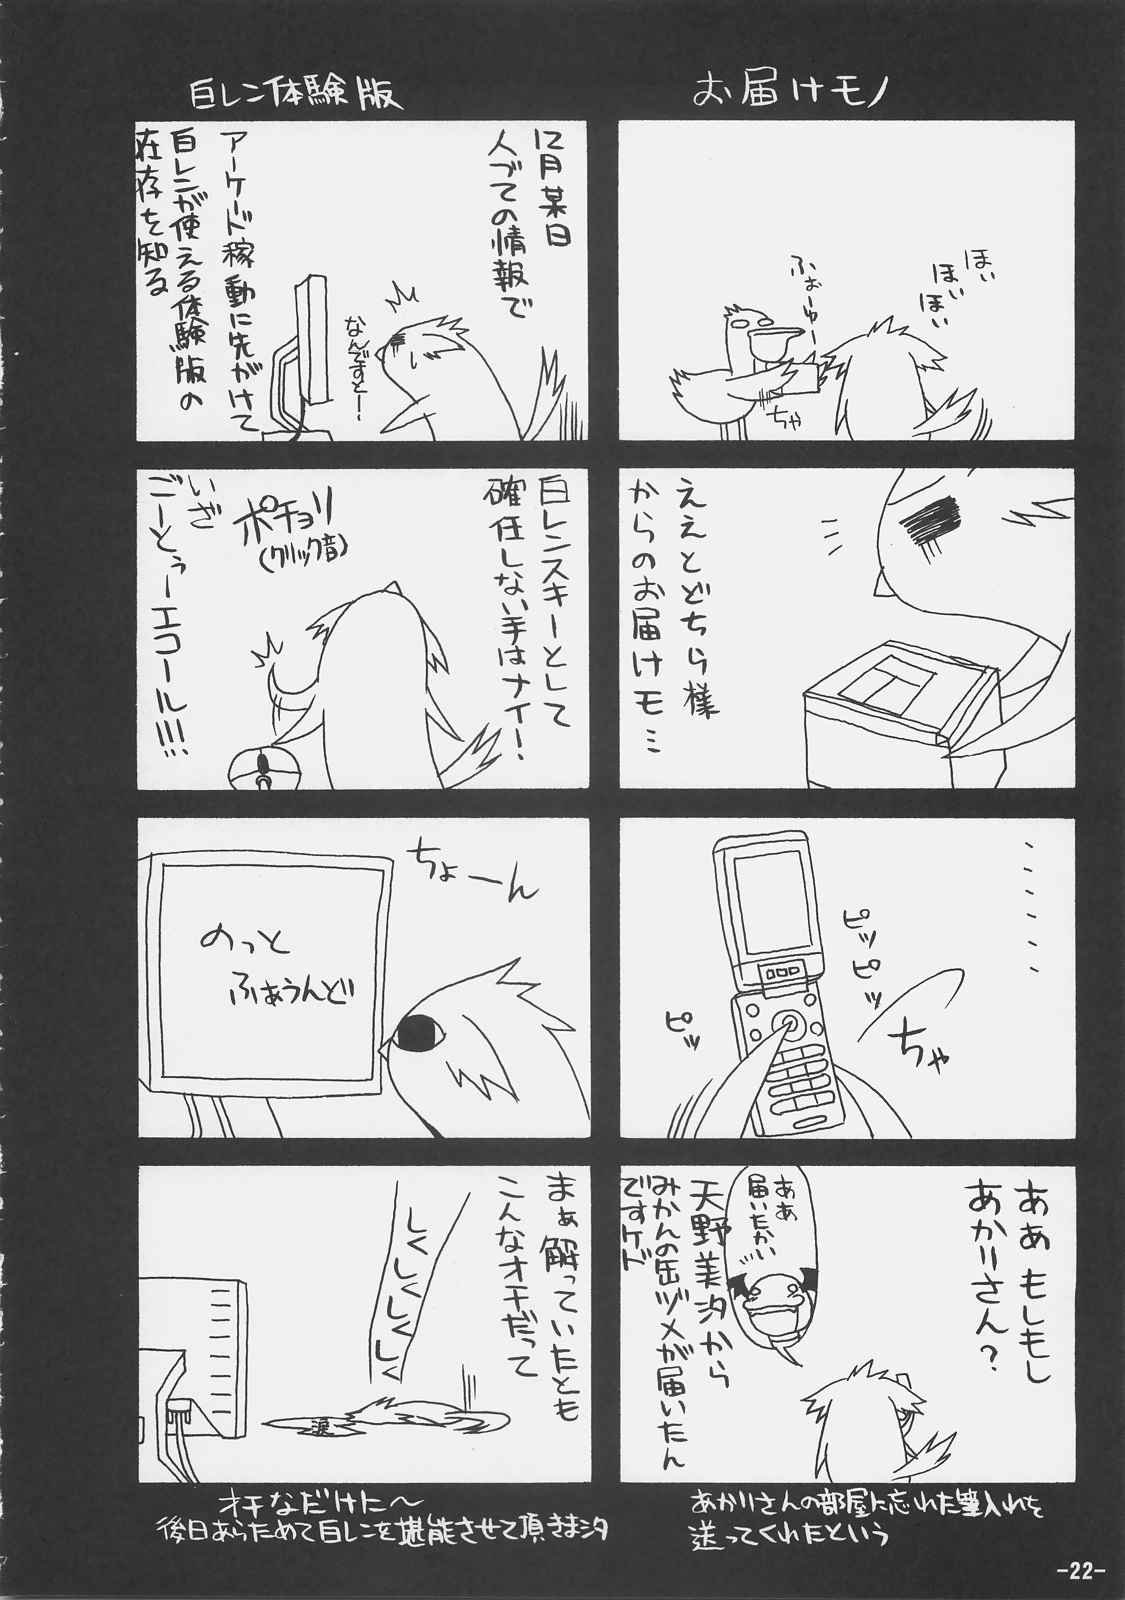 お届けモノ
ほい
ほいほい
ふぉーゆー
ちゃ
ええとどちら様
からのお届けモ…
ピッ
ピッ
ピッ
ちゃ
ああ もしもし
あかりさん?
天野美汐から
みかんの缶ヅメが届いたん
ですケド
ああ
届いたかい
あかりさんの部屋に忘れた筆入れを
送ってくれたという
白レン体験版
12月某日
人づての情報で
アーケード稼動に先がけて
白レンが使える体験版の
在存を知る
なんですとー!
白レンスキーとして
確任しない手はナイ!
ポチョリ
(クリック音)
いざ
ごーとぅーエコール!!!
ちょーん
のっと
ふぁうんど
まぁ解っていたとも
こんなオチだって
しくしくしくしく
涙
オチなだけに〜
後日あらためて白レンを堪能させて頂きまシタ
-22-